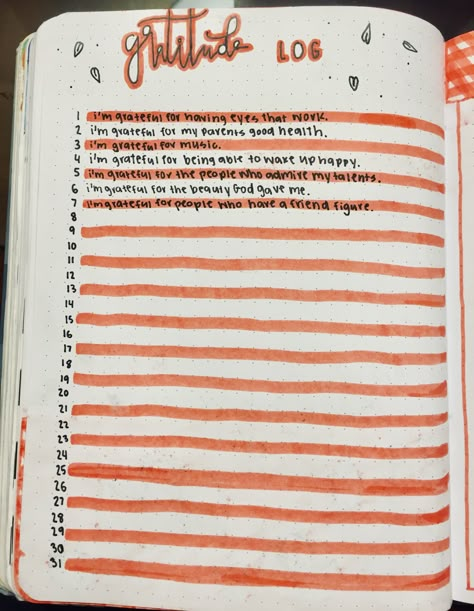 gratitude LOG
1 i'm grateful for having eyes that work.
2 i'm grateful for my parents good health.
3 i'm grateful for music.
4 i'm grateful for being able to wake up happy.
5 i'm grateful for the people who admire my talents.
6 i'm grateful for the beauty God gave me.
7 i'm grateful for people who have a friend figure.
8
9
10
11
12
13
14
15
16
17
18
19
20
21
22
23
24
25
26
27
28
29
30
31